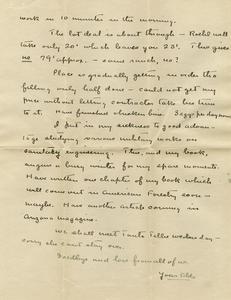 work in 10 minutes in the morning.
The lot deal is about through - will
take only 20' which leaves you 25'. This gives
us 79' approx. - some ranch, no?
Place is gradually getting in order tho
filling only half done - could not get my
price without letting contractor take his time
to it. Have finished chicken house. Eggs
I put in my sickness to good advan-
tage studying various military works on
sanitary engineering. This, and my book,
and a busy winter for my spare moments.
Have written one chapter of my book which
will come out in American Forestry soon -
maybe. Have another article coming in
Arizona magazine.
We shall meet Tante Wednesday -
sorry she can't stay over.
Goodbye and love from all of us.
Your